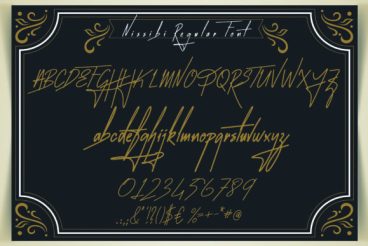 Nissibi Regular Font
ABCDEFGHIJKLMNOPQRSTUVWXYZ
abcdefghijklmnopqrstuvwxyz
0123456789
.,;&"!?()$€ %=+-*#@